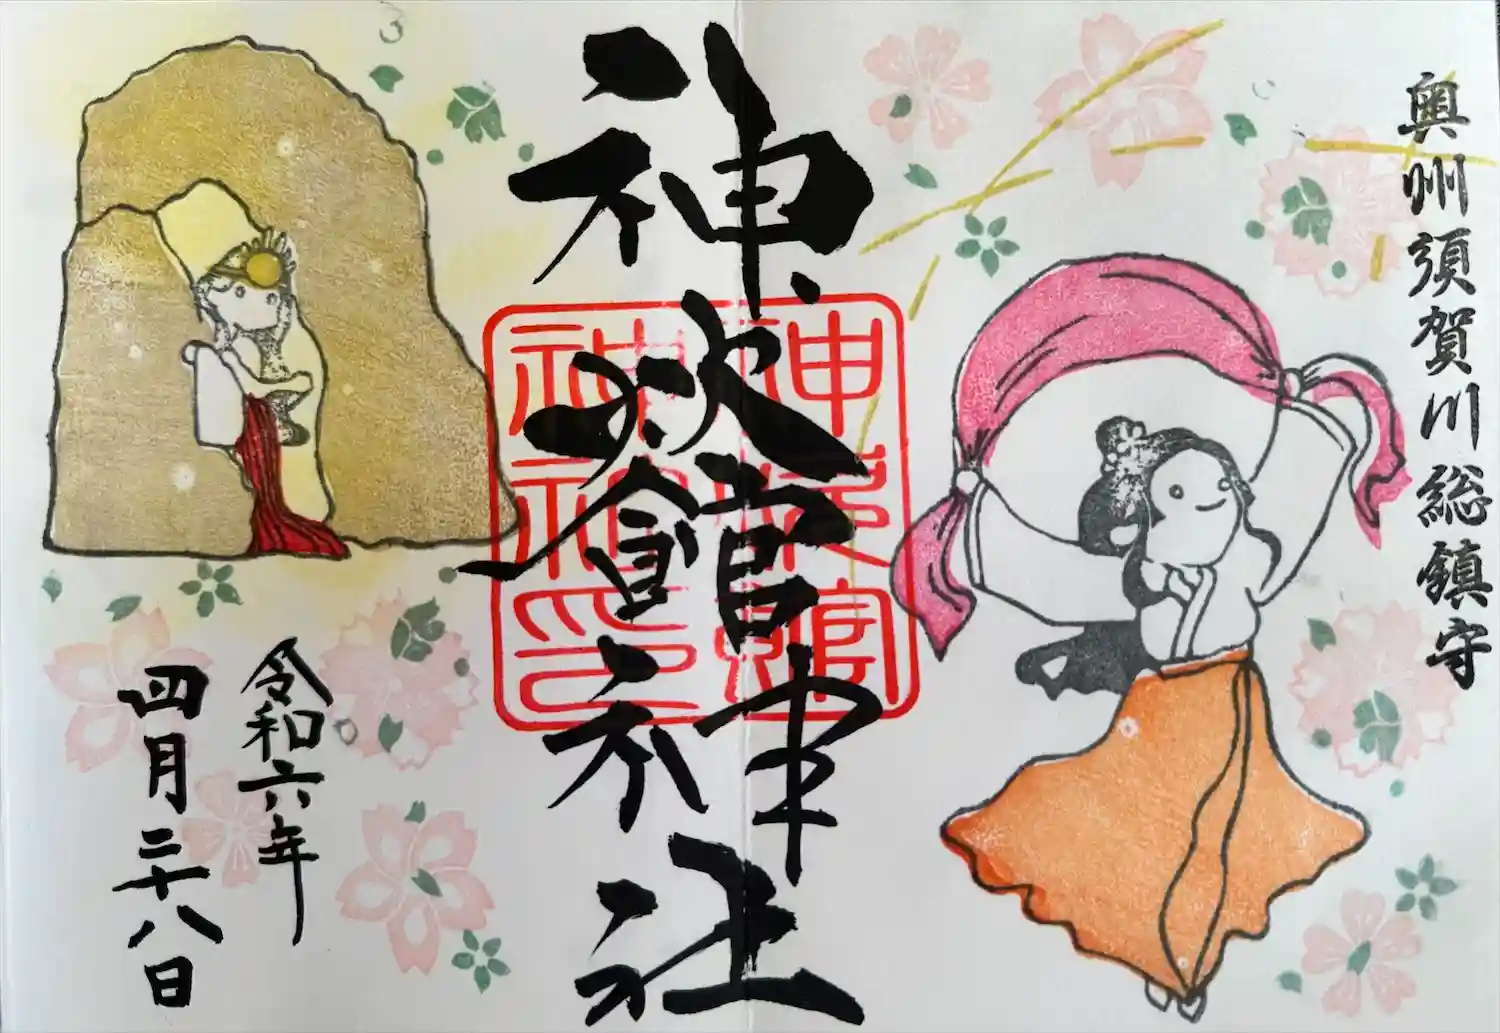 奥州須賀川総鎮守
神炊館神社
神炊館
神社印
令和六年
四月二十八日